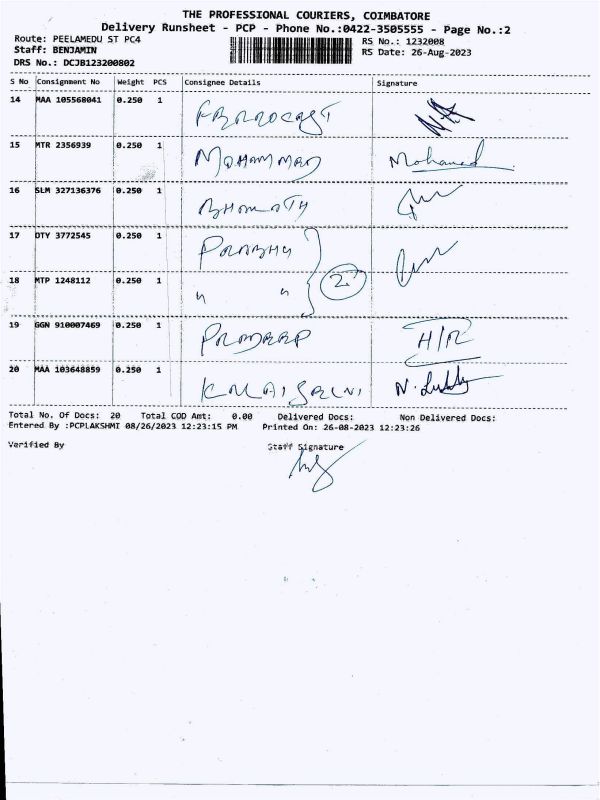 THE PROFESSIONAL COURIERS, COIMBATORE
Delivery Runsheet - PCP - Phone No.:0422-3505555 - Page No.:2
Route: PEELAMEDU ST PC4 RS No.: 1232008
Staff: BENJAMIN RS Date: 26-Aug-2023
DRS No.: DCJB123200802
S No Consignment No Weight PCS Consignee Details Signature
14 MAA 105568041 0.250 1
15 MTR 2356939 0.250 1 MOHAMMAD Mohamed
16 SLM 327136376 0.250 1
17 DTY 3772545 0.250 1 PRABHU
2
18 MTP 1248112 0.250 1 " "
19 GGN 910007469 0.250 1 PRADEEP H/R
20 MAA 103648859 0.250 1 KALAISELVI
Total No. Of Docs: 20 Total COD Amt: 0.00 Delivered Docs: Non Delivered Docs:
Entered By :PCPLAKSHMI 08/26/2023 12:23:15 PM Printed On: 26-08-2023 12:23:26
Verified By Staff Signature